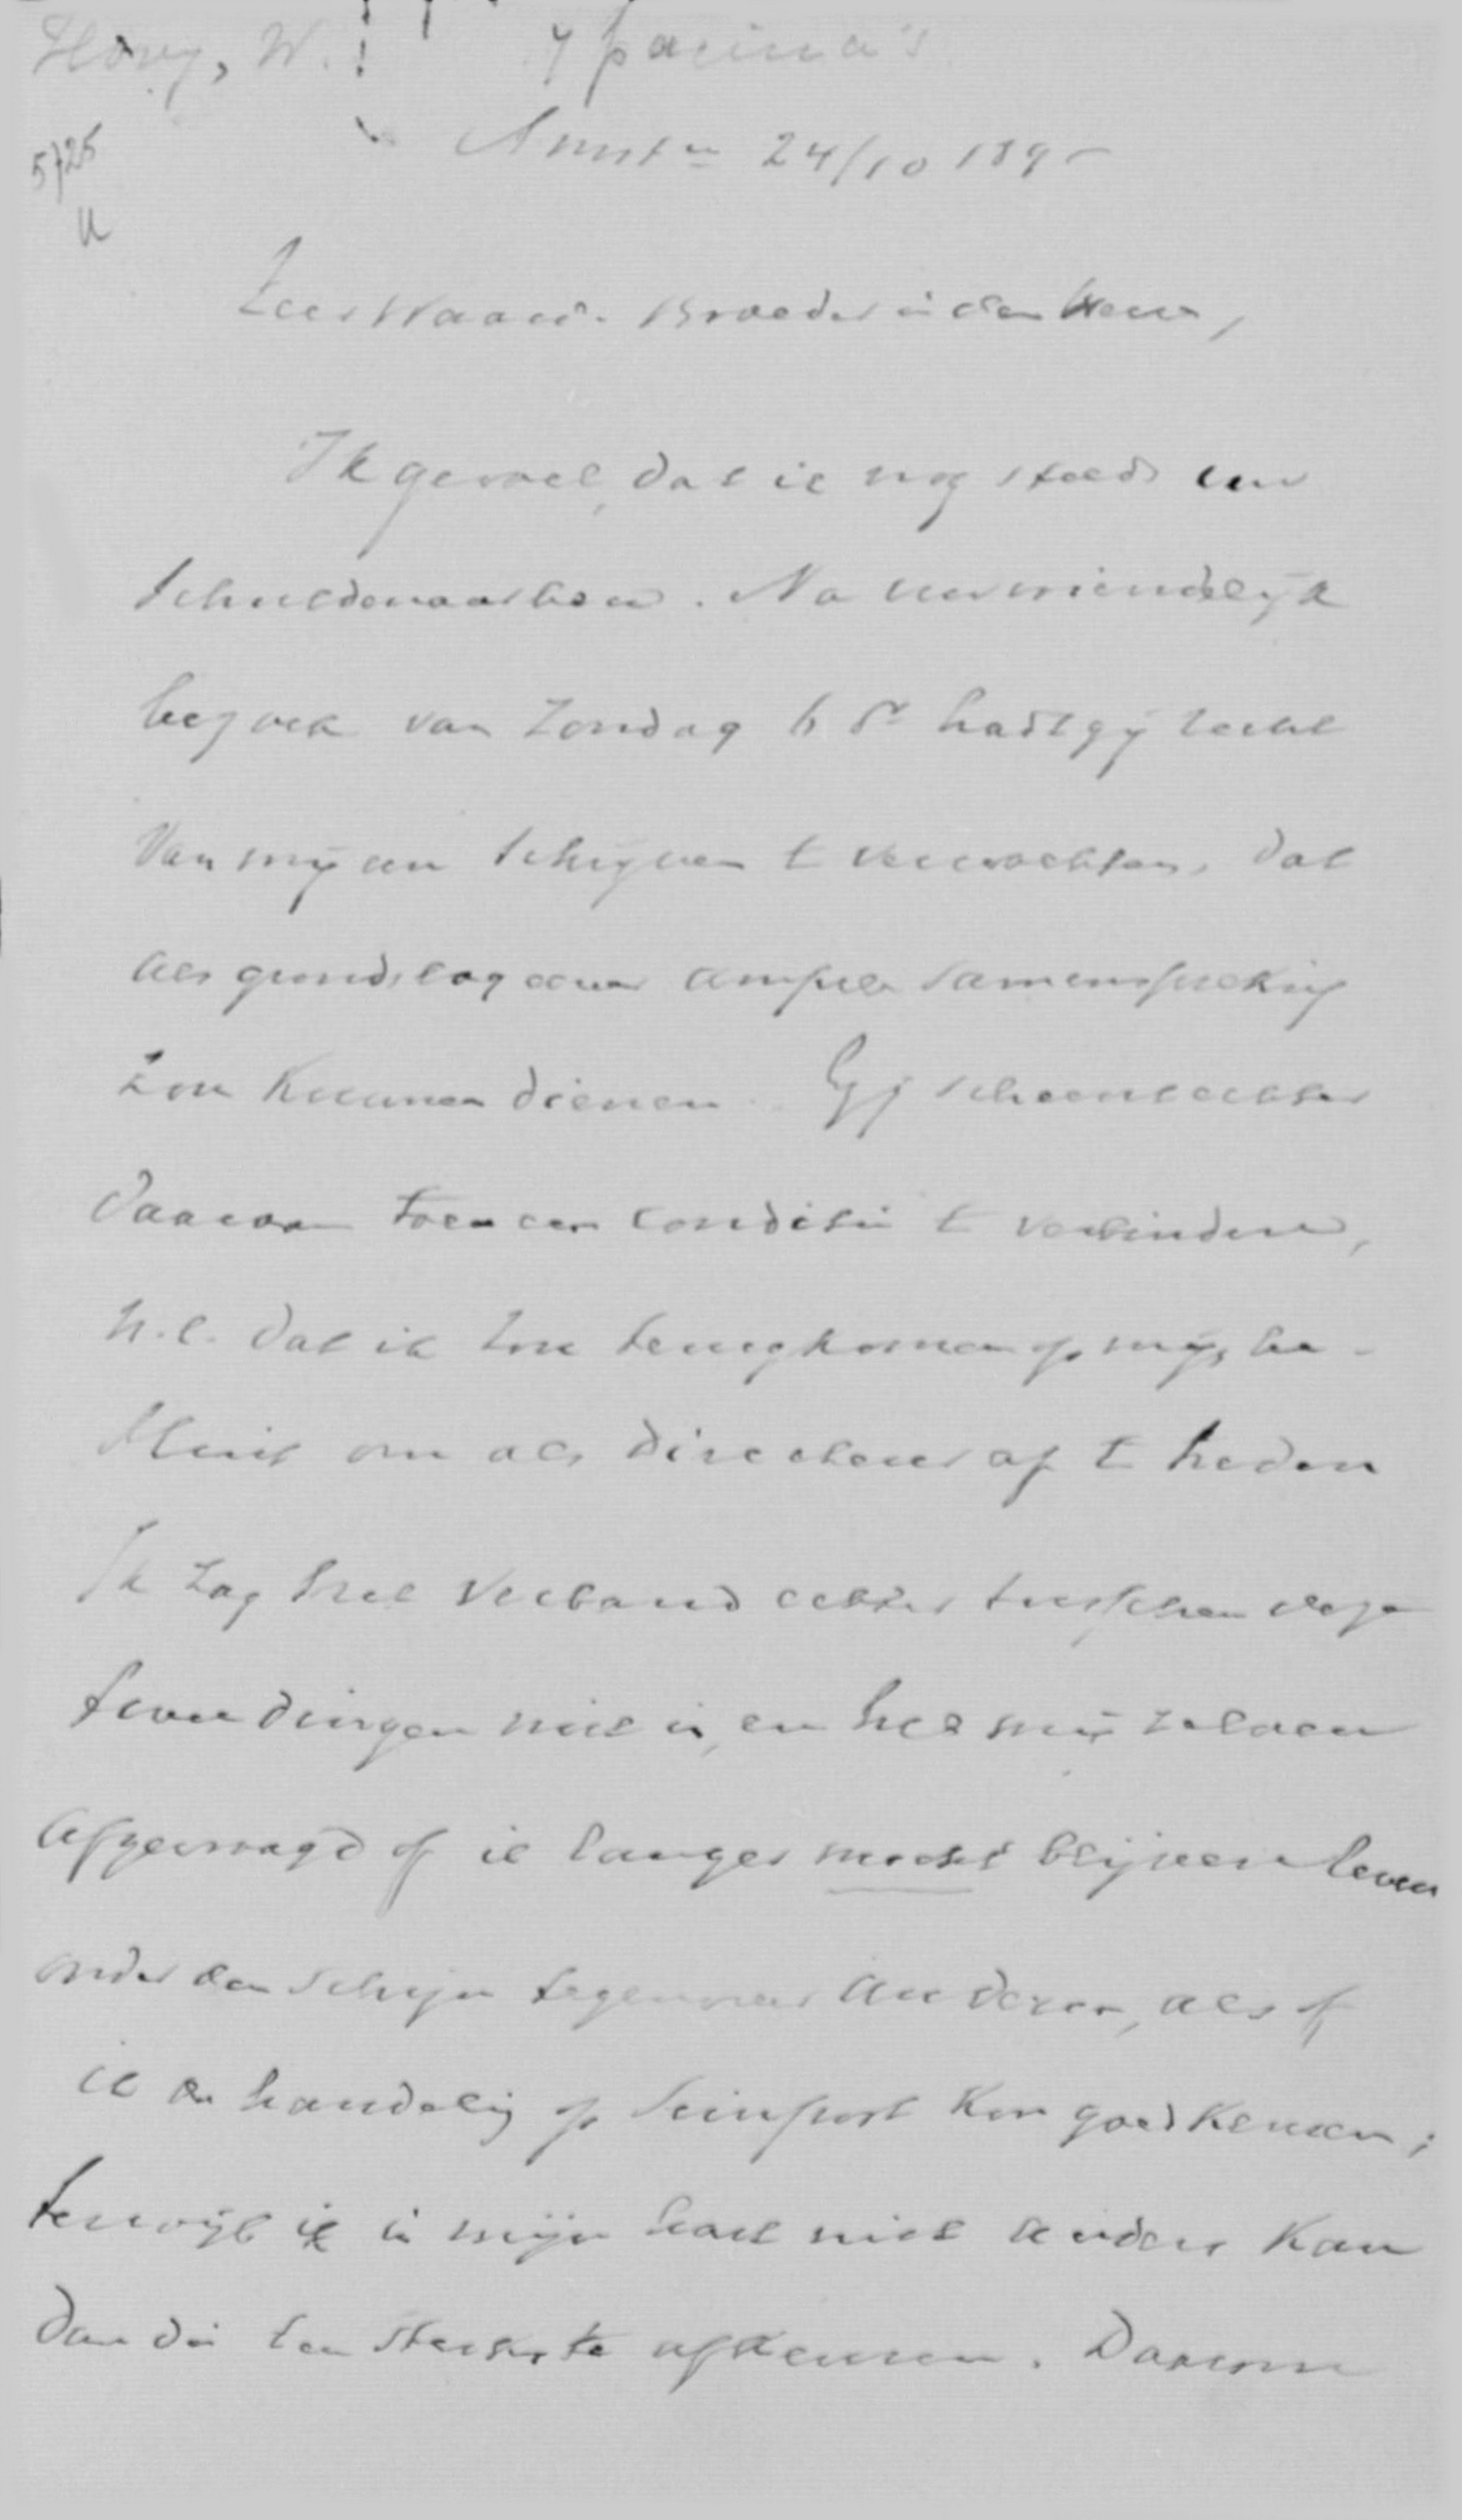 Hovy, W. 4 pagina's
5725
Amstm 24/10 1895
U
Zeer Waard. Broeder in den Heer,
Ik gevoel, dat ik nog steeds uw
schuldenaar ben. Na uw vriendelyk
bezoek van Zondag 6 Sr hadt gij recht
van mij een schrijven t verwachten, dat
als grondslag eener samenspreking
zou kunnen dienen. Gij scheent echter
daaraan toen een conditie t verbinden,
n.l. dat ik zou terugkomen op mijn be-
sluit om als Directeur af t treden
Ik zag het verband echter tusschen deze
twee dingen niet in, en heb mij zelven
afgevraagd of ik langer mocht blijven leven
onder den schijn tegenover anderen, als of
ik de handeling op Seinpost kon goedkeuren;
terwijl ik in mijn hart niet anders kan
dan die ten sterkste afkeuren. Daarom